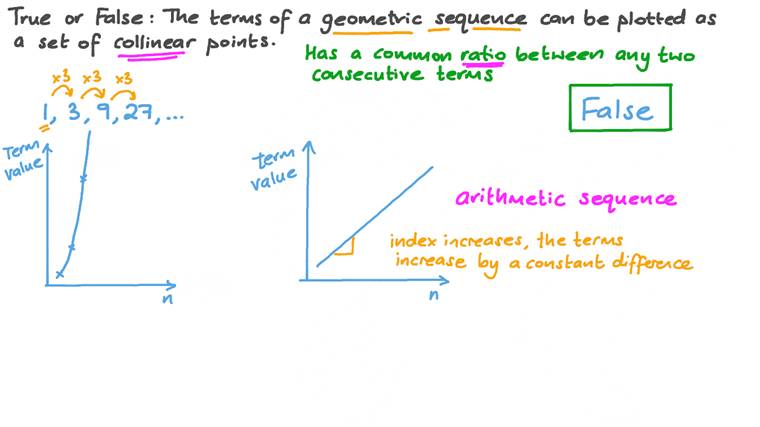 True or False: The terms of a geometric sequence can be plotted as
a set of collinear points.
Has a common ratio between any two
consecutive terms
×3 ×3 ×3
1, 3, 9, 27, ...
False
Term
value
n
term
value
n
arithmetic sequence
index increases, the terms
increase by a constant difference